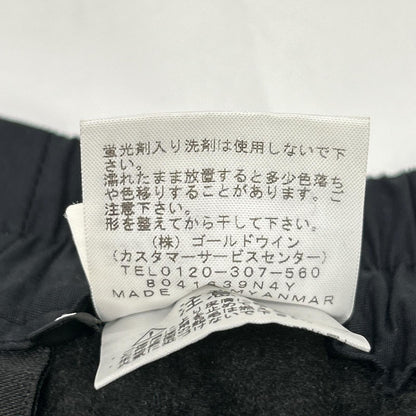 蛍光剤入り洗剤は使用しないで下
さい。
濡れたまま放置すると多少色落ち
や色移りすることがあります。ご
注意下さい。
形を整えてから干して下さい。
(株) ゴールドウイン
(カスタマーサービスセンター)
TEL0120-307-560
MADE MYANMAR